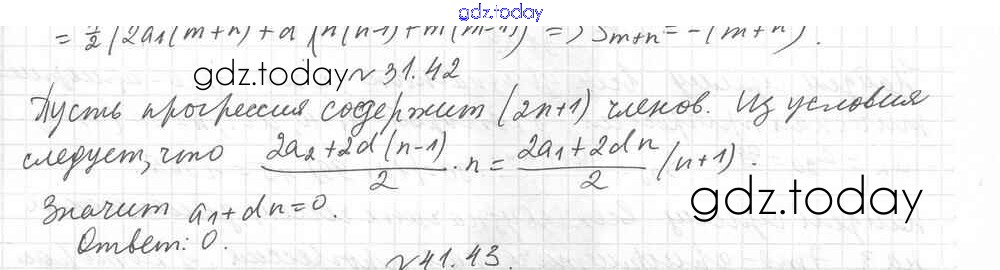 gdz.today
= 1/2 (2a₁(m+n) + d (n(n-1) + m(m-1)) => Sm+n = -(m+n).
gdz.today
№ 31.42
Пусть прогрессия содержит (2n+1) членов. Из условия
следует, что (2a₂+2d(n-1))/2 · n = (2a₁+2dn)/2 (n+1).
gdz.today
Значит a₁+dn=0.
Ответ: 0.
№ 41.43.